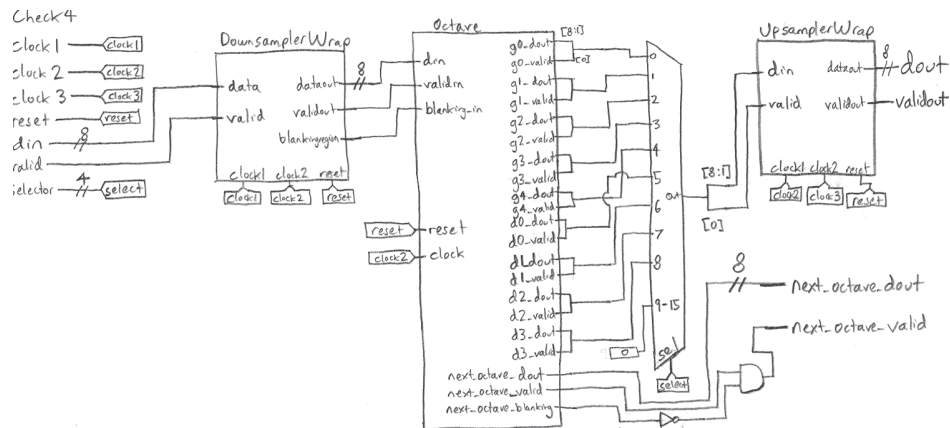 Check4
clock1
clock1
clock 2
clock2
clock 3
clock3
reset
reset
din
8
valid
selector
4
select
DownsamplerWrap
data
valid
dataout
8
validout
blankingregion
clock1 clock2 reset
clock1
clock2
reset
Octave
din
validin
blanking_in
reset
reset
clock2
clock
g0_dout
g0_valid
g1_dout
g1_valid
g2_dout
g2_valid
g3_dout
g3_valid
g4_dout
g4_valid
d0_dout
d0_valid
d1_dout
d1_valid
d2_dout
d2_valid
d3_dout
d3_valid
next_octave_dout
next_octave_valid
next_octave_blanking
[8:1]
[0]
0
1
2
3
4
5
6
7
8
9-15
0
out
sel
select
[8:1]
[0]
UpsamplerWrap
din
valid
dataout
validout
8
dout
validout
clock1 clock2 reset
clock2
clock3
reset
8
next_octave_dout
next_octave_valid